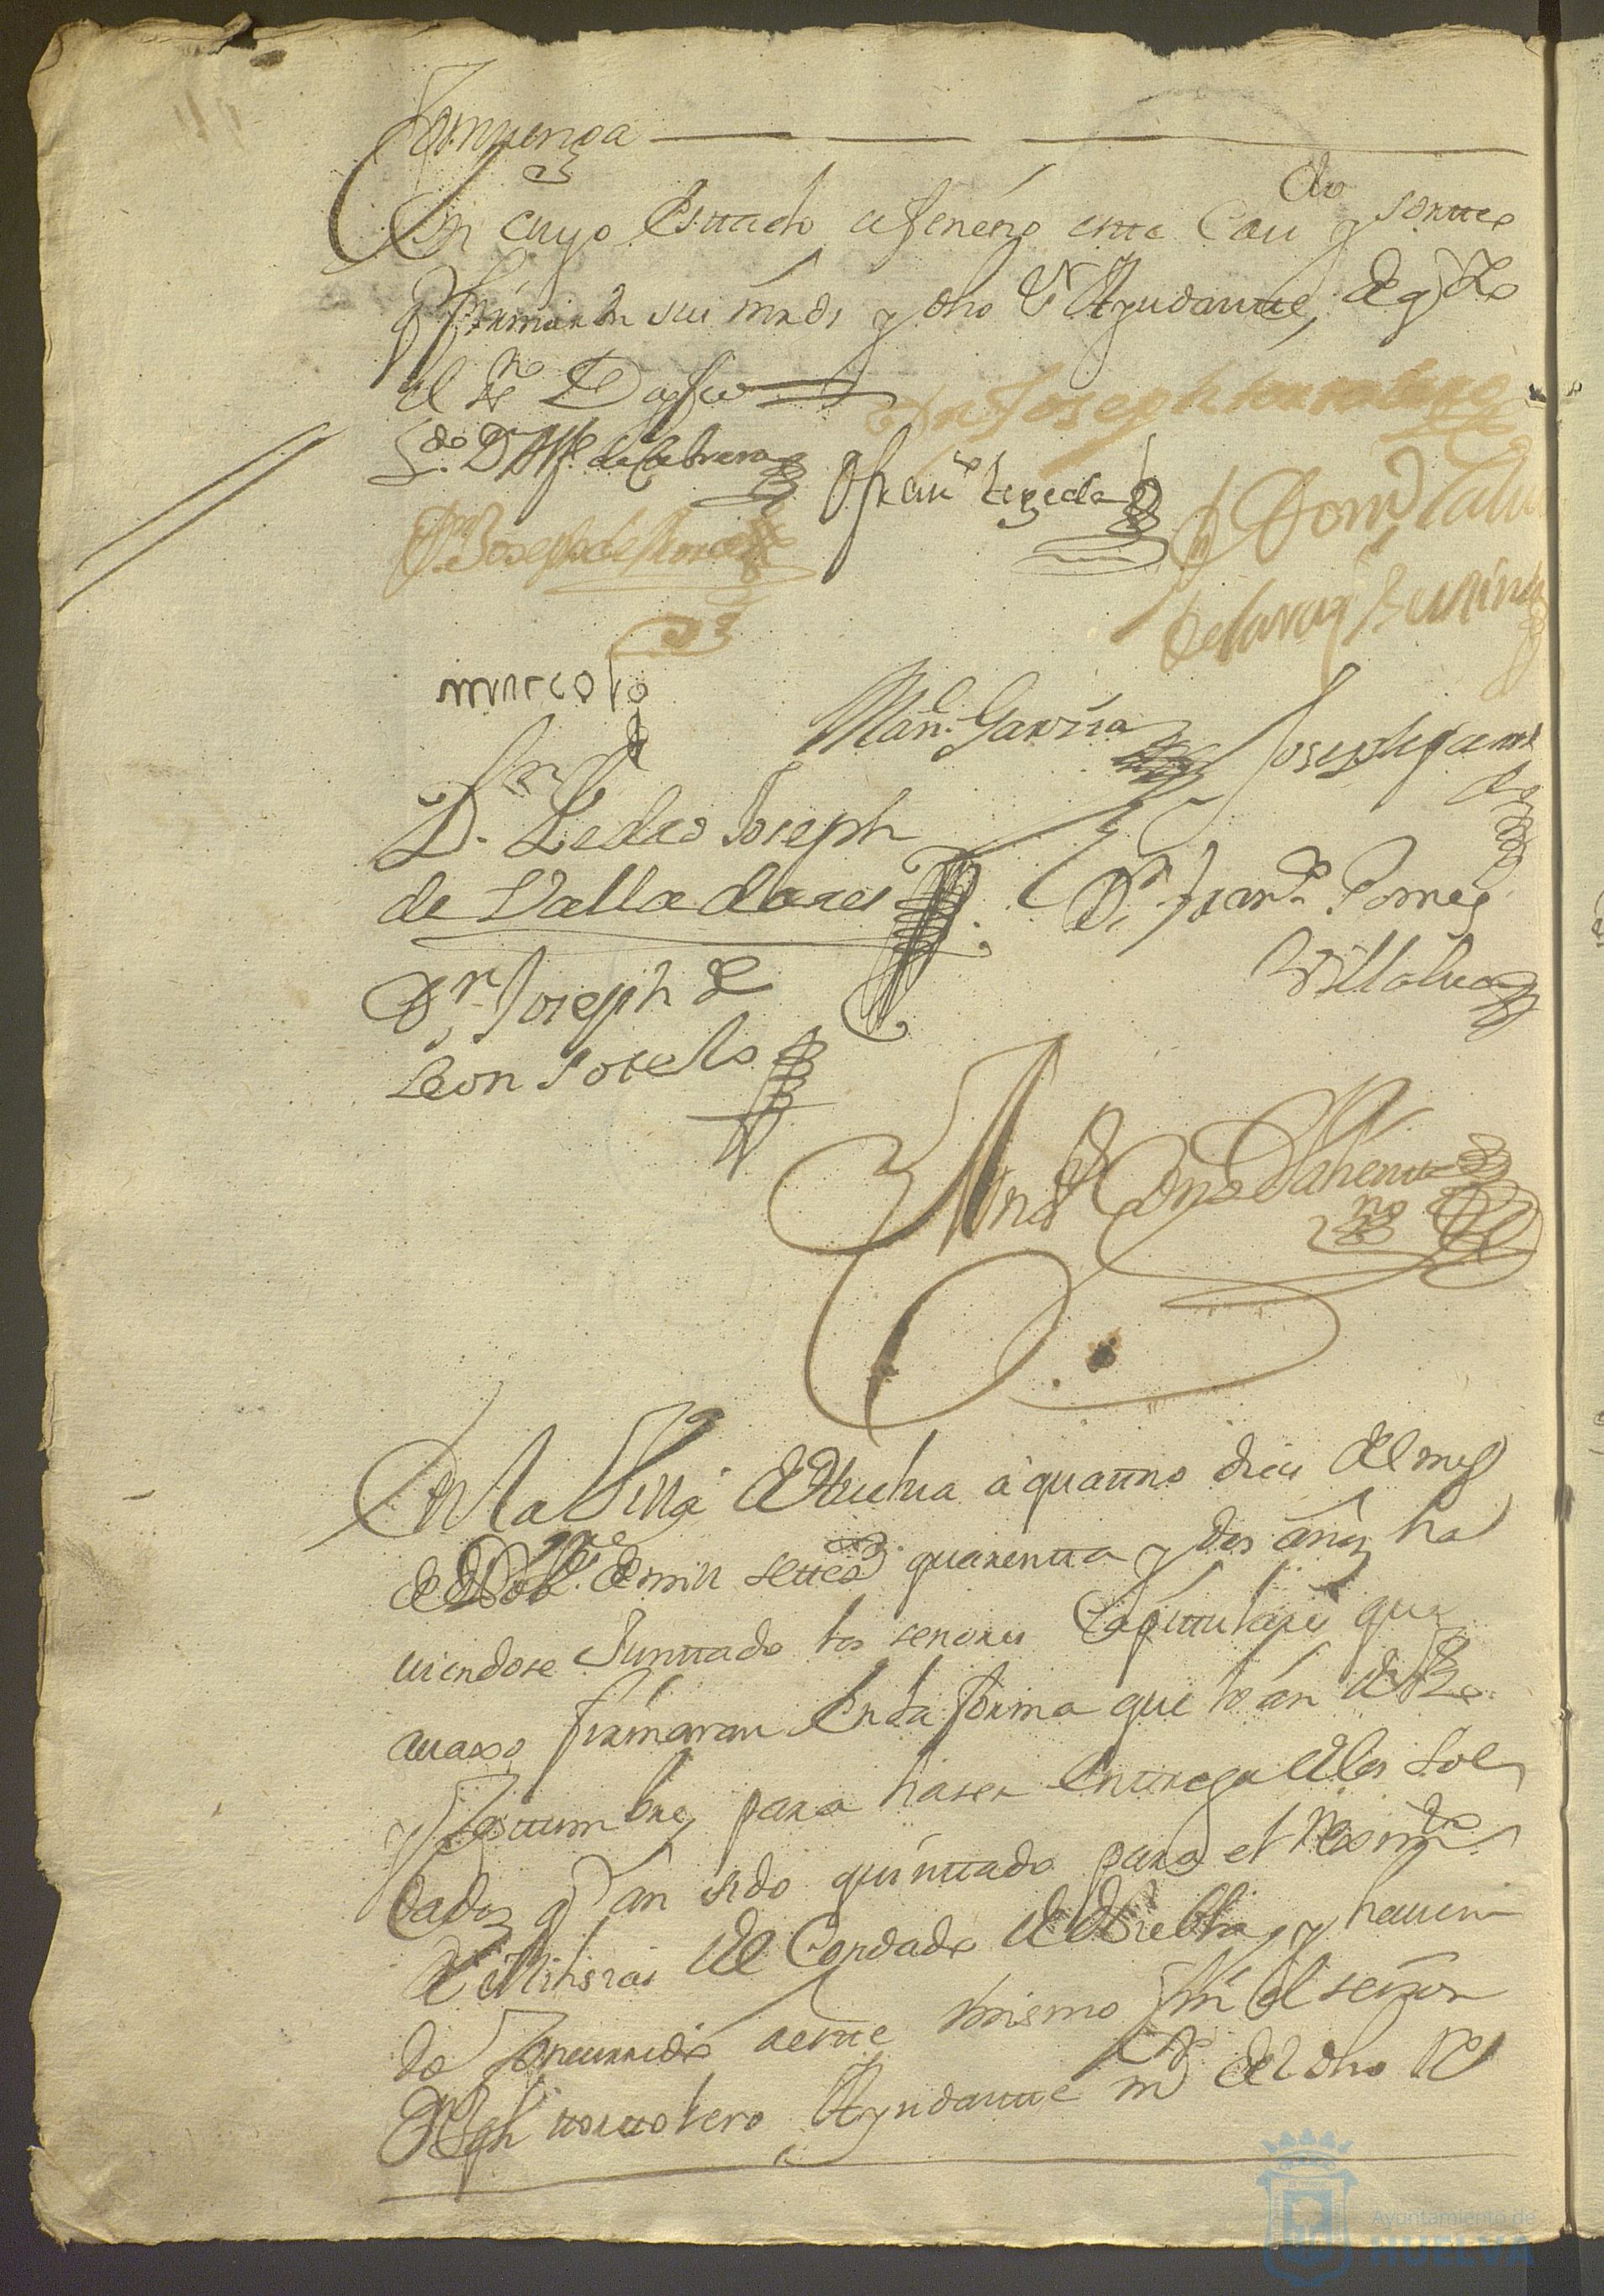 Convenga
En cuyo Esttado se feneció este Cavdo y sortteo
q firmaron sus mrds y dho Sr Ayudantte, de q Yo
el esno Doy fee
Ldo Dn Alfo de Cabrera
Dn Joseph
Franco tegeda
Domo
marcos
Manl. Garzia
Joseph
Dn Pedro Joseph
de Valladares
Dn Franco Gomez
Villalva
Dn Joseph de
Leon Sotelo
Anttt
no
En la Villa de Huelva a quattro dias del mes
de Novre de mill settecos quarentta y dos años ha
viendose Junttado los señores Capittulares que
avaxo firmaran En la forma que lo an de Vso
y Costtumbre, para haser Enttrega de los Sol
dados q an sido quinttado para el Reximto
de Milisias del Condado de Niebla, y havien
do Concurrido a este mismo fin el señor
Dn Jph Ayudantte mor del dho Re
Ayuntamiento de
HUELVA